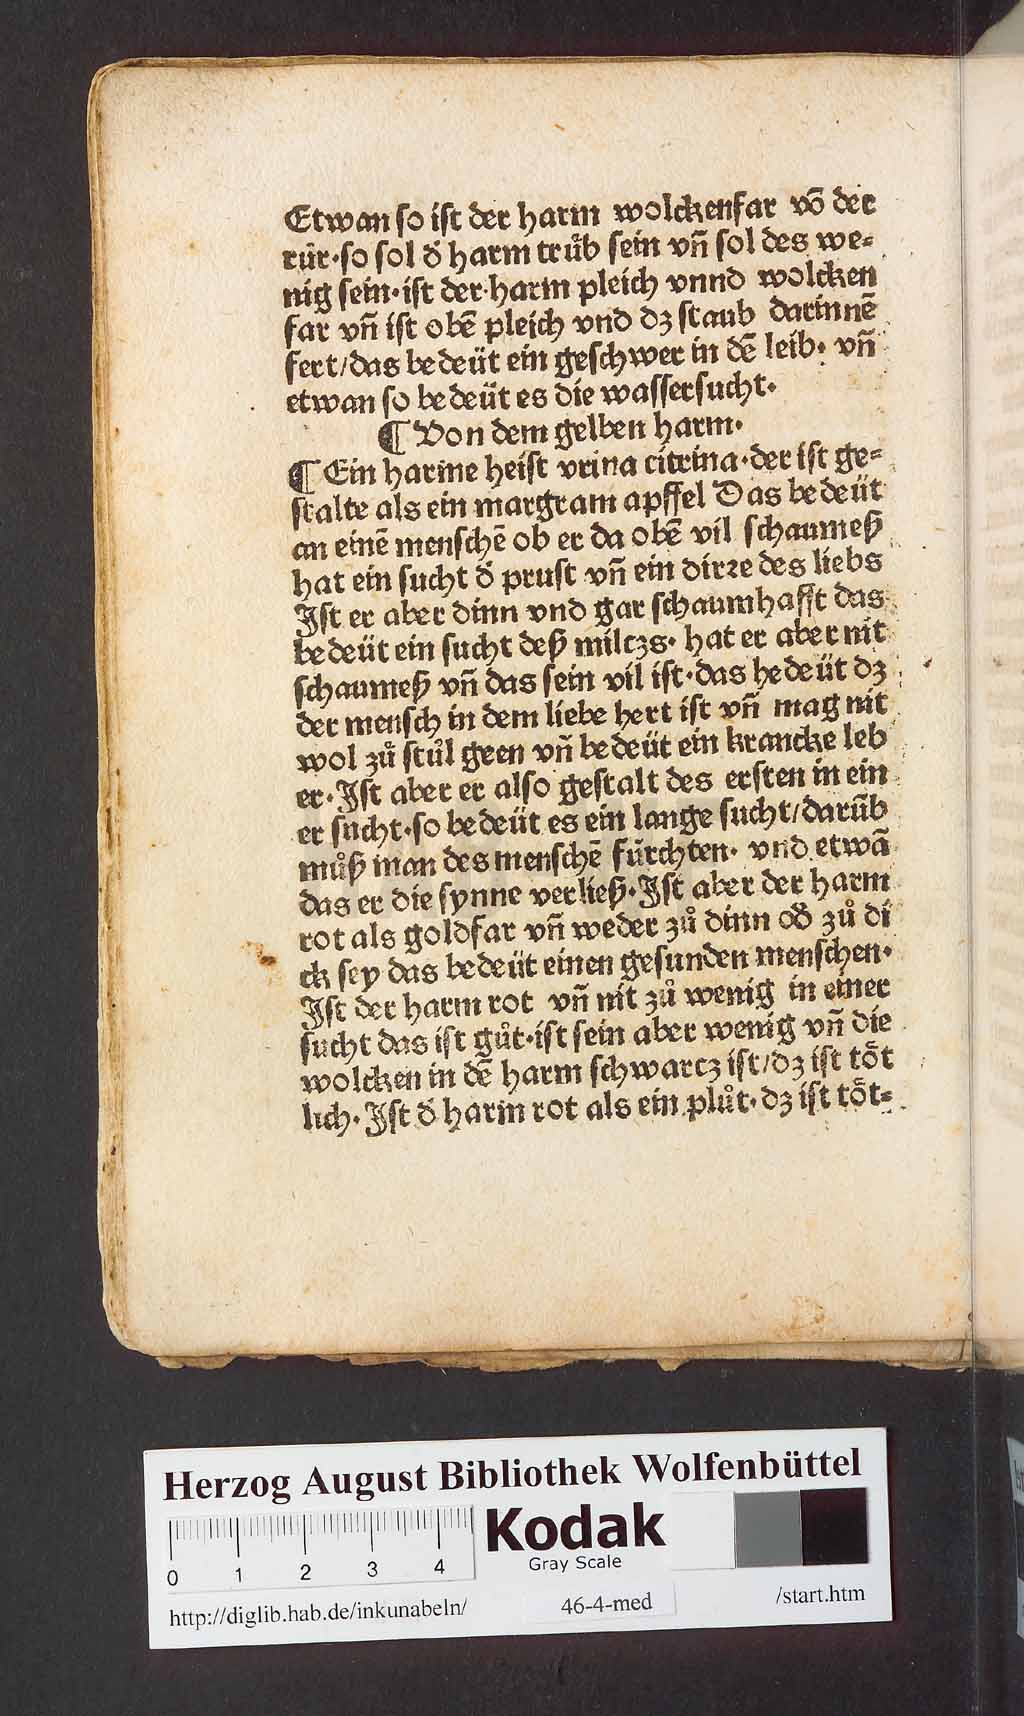 Etwan so ist der harm wolckenfar võ der
rür·so sol d̓ harm trüb sein vñ sol des we=
nig sein·ist der·harm pleich vnnd wolcken
far vñ ist obẽ pleich vnd dz staub darinnẽ
fert/das bedeüt ein geschwer in dẽ leib· vñ
etwan so bedeüt es die wassersucht·
¶ Von dem gelben harm·
¶ Ein harme heist vrina citrina·der ist ge=
stalte als ein margram apffel Das bedeüt
an einẽ menschẽ ob er da obẽ vil schaumeß
hat ein sucht d̓ prust vñ ein dirre des liebs
Jst er aber dinn vnd gar schaumhafft das
bedeüt ein sucht deß milczs· hat er aber nit
schaumeß vñ das sein vil ist·das hedeüt dz
der mensch in dem liebe hert ist vñ mag nit
wol zů stůl geen vñ bedeüt ein krancke leb
er·Jst aber er also gestalt des ersten in ein
er sucht·so bedeüt es ein lange sucht/darũb
můß man des menschẽ fürchten· vnd etwã
das er die synne verließ·Jst aber der harm
rot als goldfar vñ weder zů dinn od̓ zů di
ck sey das bedeüt einen gesunden menschen·
Jst der harm rot vñ nit zů wenig in einer
sucht das ist gůt·ist sein aber wenig vñ die
wolcken in dẽ harm schwarcz ist/dz ist töt
lich·Jst d̓ harm rot als ein plůt·dz ist töt=
Herzog August Bibliothek Wolfenbüttel
0 1 2 3 4
Kodak
Gray Scale
http://diglib.hab.de/inkunabeln/ 46-4-med /start.htm